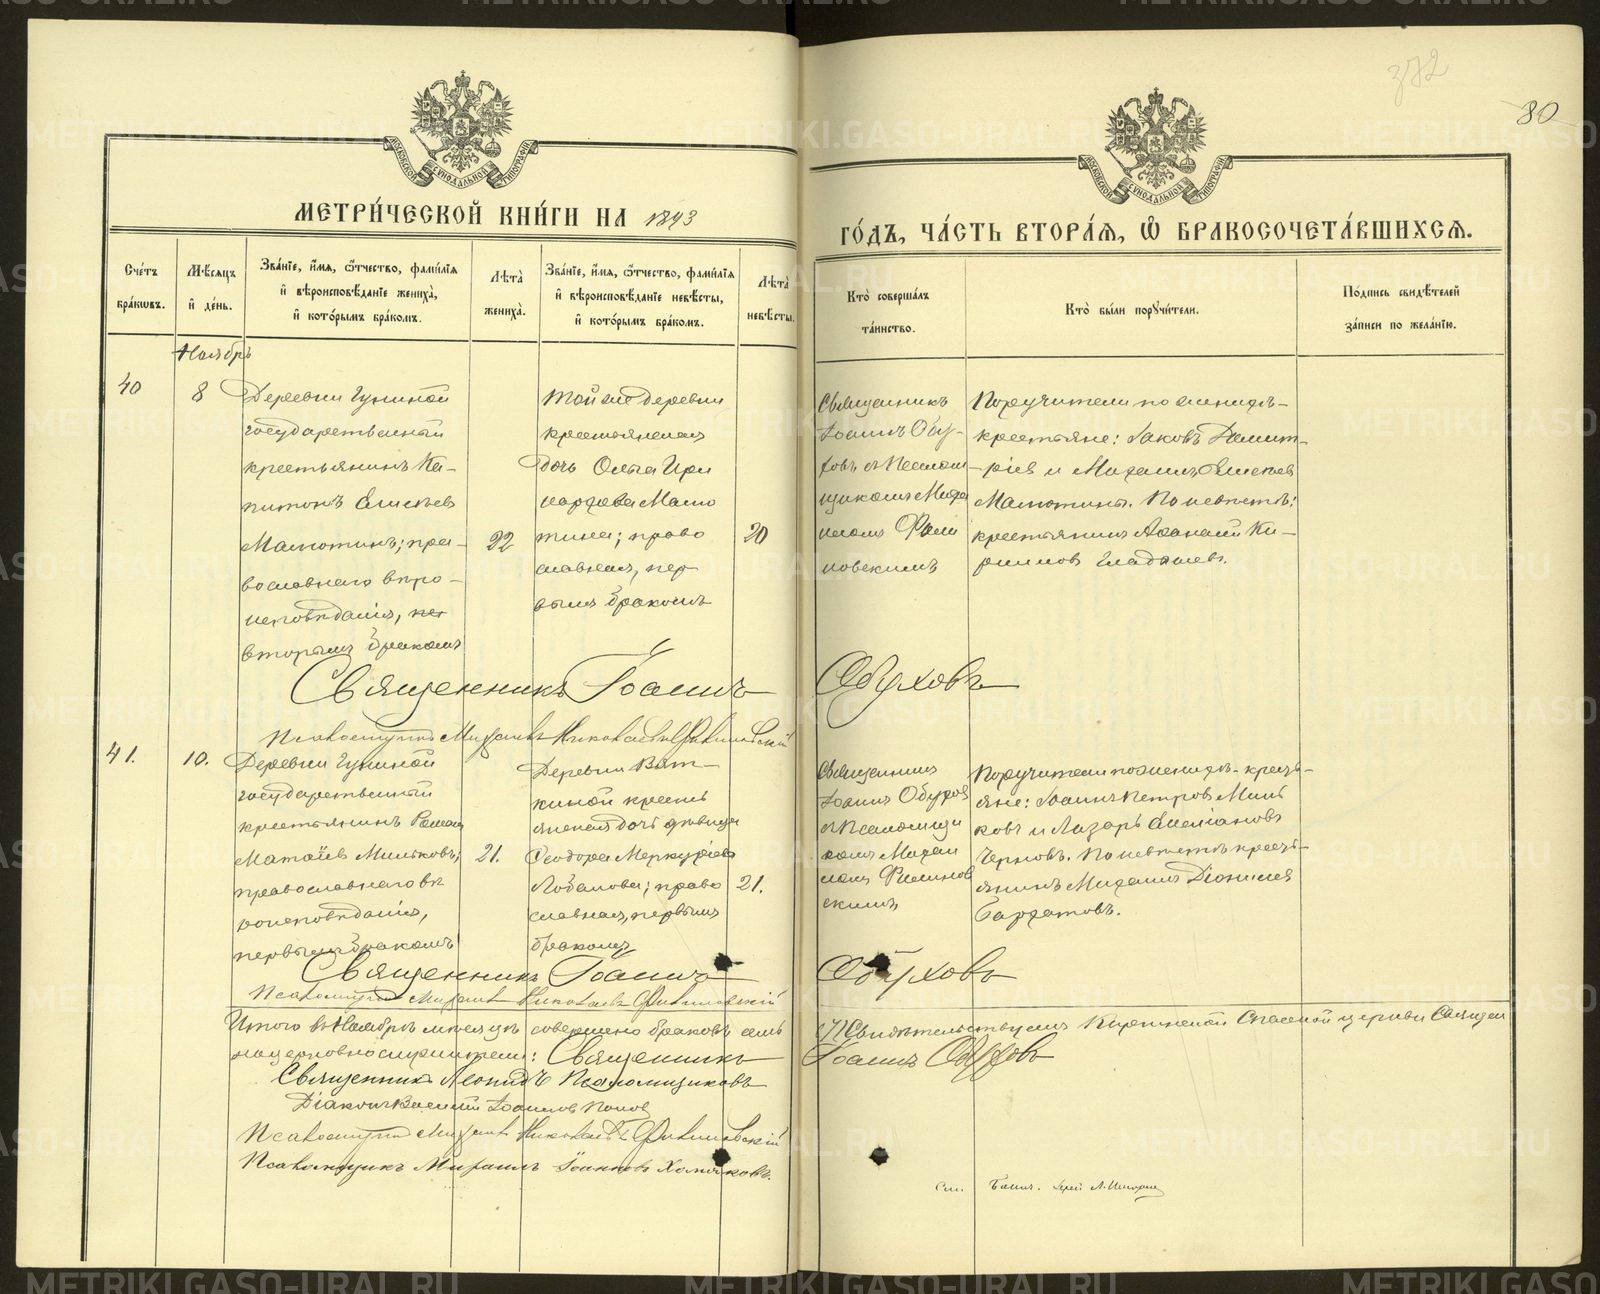 372
80
МОСКОВСКОЙ СѴНОДАЛЬНОЙ ТИПОГРАФІИ
МОСКОВСКОЙ СѴНОДАЛЬНОЙ ТИПОГРАФІИ
МЕТРИ́ЧЕСКОЙ КНИ́ГИ НА 1893
ГО́ДЪ, ЧА́СТЬ ВТОРА́Я, Ѽ БРАКОСОЧЕТА́ВШИХСЯ.
Сче́тъ бра́кѡвъ.
Мѣ́сяцъ и҆ де́нь.
Зва́нїе, и҆́мя, ѻ҆́тчество, фами́лїя и҆ вѣроисповѣ́данїе жениха̀, и҆ кото́рымъ бра́комъ.
Лѣ́та жениха̀.
Зва́нїе, и҆́мя, ѻ҆́тчество, фами́лїя и҆ вѣроисповѣ́данїе невѣ́сты, и҆ кото́рымъ бра́комъ.
Лѣ́та невѣ́сты.
Кто̀ соверша́лъ та́инство.
Кто̀ бы́ли порꙋчи́тели.
По́дпись свидѣ́телей за́писи по жела́нїю.
Ноябрь
40
8
Деревни Гуниной
государственный
крестьянинъ Ка-
питонъ Елисѣевъ
Малютинъ; пра-
вославнаго вѣро-
исповѣданія,
вторымъ бракомъ
22
Той же деревни
крестьянская
дочь Ольга Ири
нархова Малю
тина; право
славная, пер
вымъ бракомъ
20
Священникъ
Іоаннъ Обу-
ховъ съ Псалом
щикомъ Миха
иломъ Фили
новскимъ
Поручители по женихѣ-
крестьяне: Іаковъ Димит-
ріевъ и Михаилъ Елисѣевъ
Малютины. По невѣстѣ:
крестьянинъ Аѳанасій Ки-
рилловъ Гладышевъ.
Священникъ Іоаннъ Обуховъ
Псаломщикъ Михаилъ Николаевъ Филиновскій
41.
10.
Деревни Гуниной
государственный
крестьянинъ Романъ
Матѳіевъ Мильковъ;
православнаго вѣ
роисповѣданія,
первымъ бракомъ
21.
Деревни Вят-
киной крестья
янская дочь дѣвица
Ѳеодора Меркуріева
Лобанова; право
славная, первымъ
бракомъ
21.
Священникъ
Іоаннъ Обухов
съ Псаломщи
комъ Михаи
ломъ Филинов
скимъ
Поручители по женихѣ- кресть-
яне: Іоаннъ Петровъ Миль
ковъ и Лазарь Емельяновъ
Черновъ. По невѣстѣ кресть-
янинъ Михаилъ Діонисіевъ
Бархатовъ.
Священникъ Іоаннъ Обуховъ
Псаломщикъ Михаилъ Николаевъ Филиновскій
Итого въ Ноябрѣ мѣсяцѣ совершено браковъ семь (7) Свидѣтельствуемъ Спасской церкви Священ
ноцерковнослужители: Священникъ Іоаннъ Обуховъ
Священникъ Леонидъ Псаломщиковъ
Діаконъ Василій Іоанновъ Поповъ
Псаломщикъ Михаилъ Николаевъ Филиновскій
Псаломщикъ Михаилъ Іоанновъ Хомяковъ.